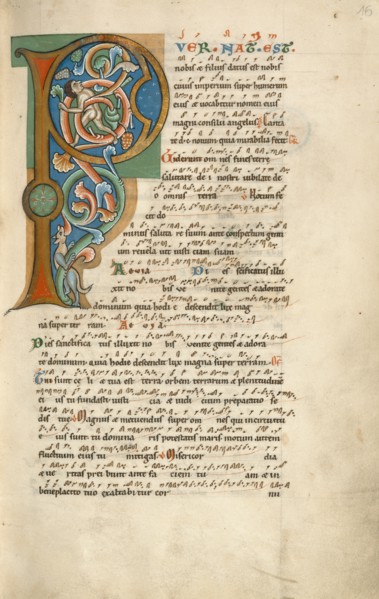 16
VER NAT EST.
nobis & filius datus est nobis
cuius imperium super humerum
eius & vocabitur nomen eius
magni consilii angelus Canta
te d e nonum quia mirabilia fecit
Viderunt omnes fines terre
salutare de i nostri iubilate de
o omnis terra Notum fe
cit do
minus salutare suum ante conspectum genti
um revelavit iusti ciam suam
Aevia Di es sctificatus illu
xit no bis ve nite gentes & adorate
dominum quia hodie descendit lux mag
na super ter ram. Ae v ya.
Dies sanctifica tus illuxit no bis venite gentes & adora
te dominum quia hodie descendit lux magna super terram.
Tui sunt ce li & tua est terra orbem terrarum & plenitudine
ei us tu fundasti iusti cia & iudi cium preparatio se
dis tue Magnus & metuendus super om nes qui in circuitu
e ius sunt tu domina ris potestati maris motum autem
fluctuum eius tu mitigas Misericor dia
& ve ritas preibunt ante fa ciem tu am & in
beneplacito tuo exaltabi tur cor nu